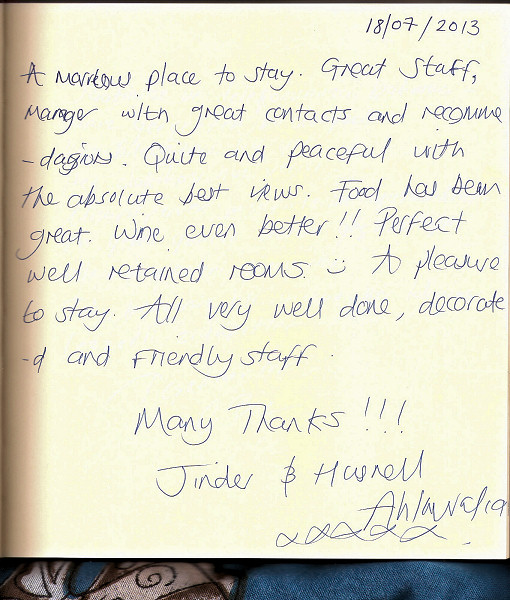 18/07/2013
A place to stay. Great Staff,
Manager with great contacts and recomme
-dagions. Quite and peaceful with
the absolute best views. Food has been
great. Wine even better!! Perfect
well retained rooms. :) A pleasure
to stay. All very well done, decorate
-d and Friendly staff.
Many Thanks !!!
Jinder &
Ahluwalia